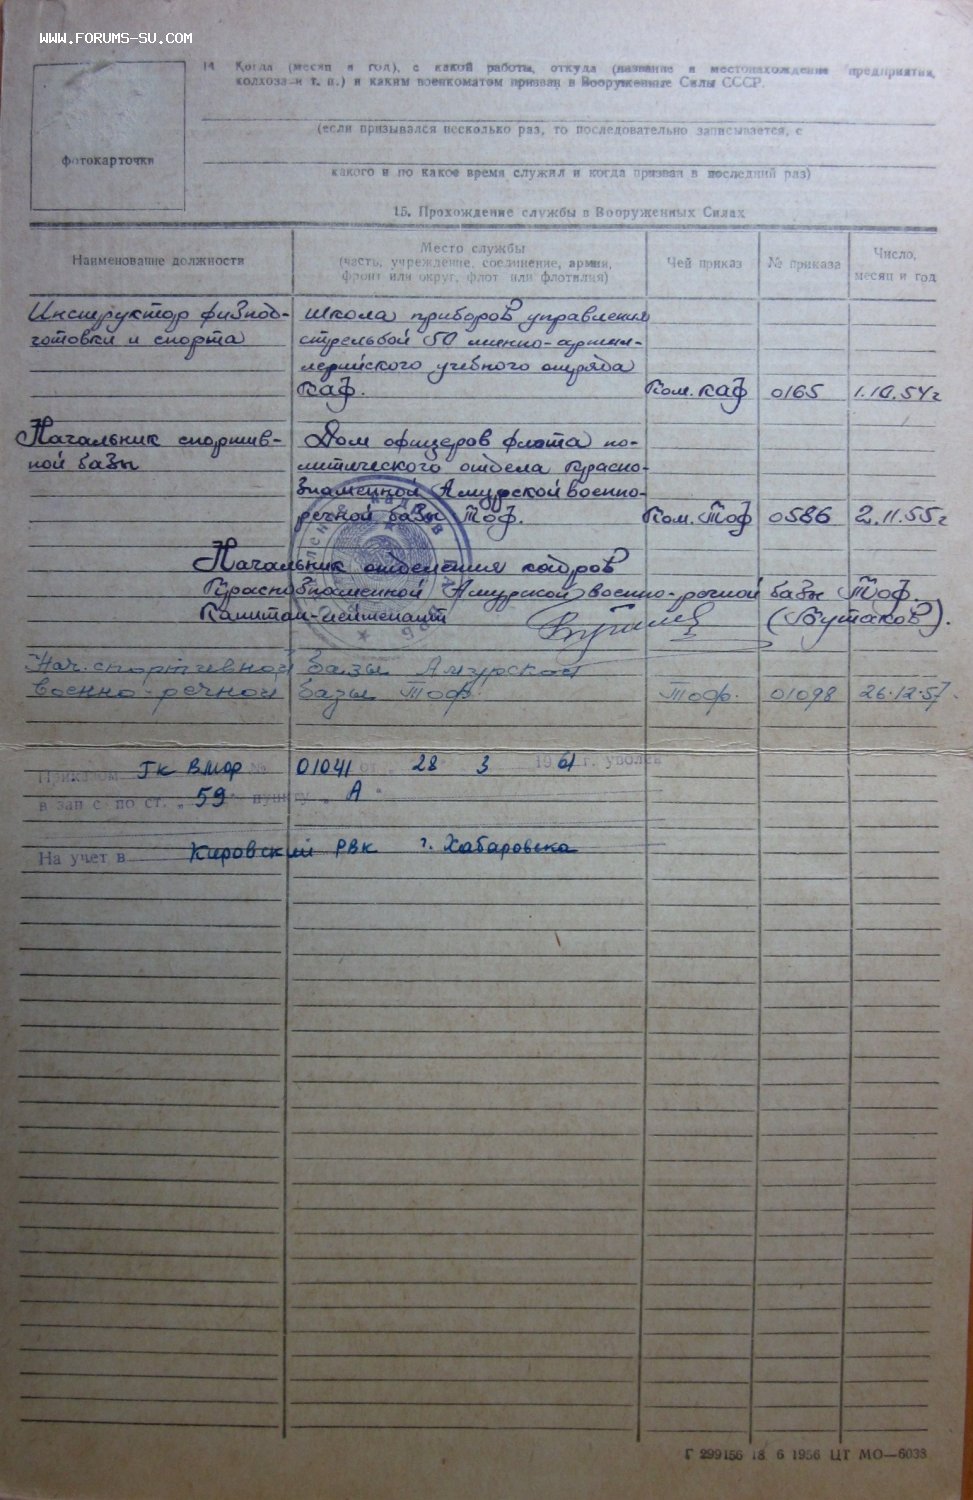 WWW.FORUMS-SU.COM
фотокарточки
14 Когда (месяц и год), с какой работы, откуда (название и местонахождение предприятия,
колхоза и т. п.) и каким военкоматом призван в Вооруженные Силы СССР.
(если призывался несколько раз, то последовательно записывается, с
какого и по какое время служил и когда призван в последний раз)
15. Прохождение службы в Вооруженных Силах
Наименование должности
Место службы
(часть, учреждение, соединение, армия,
фронт или округ, флот или флотилия)
Чей приказ
№ приказа
Число,
месяц и год
Инструктор физпод-
готовки и спорта
школа приборов управления
стрельбой 50 минно-артил-
лерийского учебного отряда
КАФ.
Ком. КАФ 0165 1.10.54 г
Начальник спортив-
ной базы
Дом офицеров флота по-
литического отдела Красно-
знаменной Амурской военно-
речной базы ТОФ.
Ком. ТОФ 0586 2.11.55 г
Начальник отделения кадров
Краснознаменной Амурской военно-речной базы ТОФ.
Капитан-лейтенант (Бутаков).
Нач. спортивной базы Амурской
военно-речной базы ТОФ. ТОФ. 01098 26.12.57.
Приказом ГК ВМФ № 01041 от „ 28 3 1961 г. уволен
в запас по ст. „ 59 " пункту „ А "
На учет в Кировский РВК г. Хабаровска
Г 299156 18 6 1956 ЦТ МО—6038